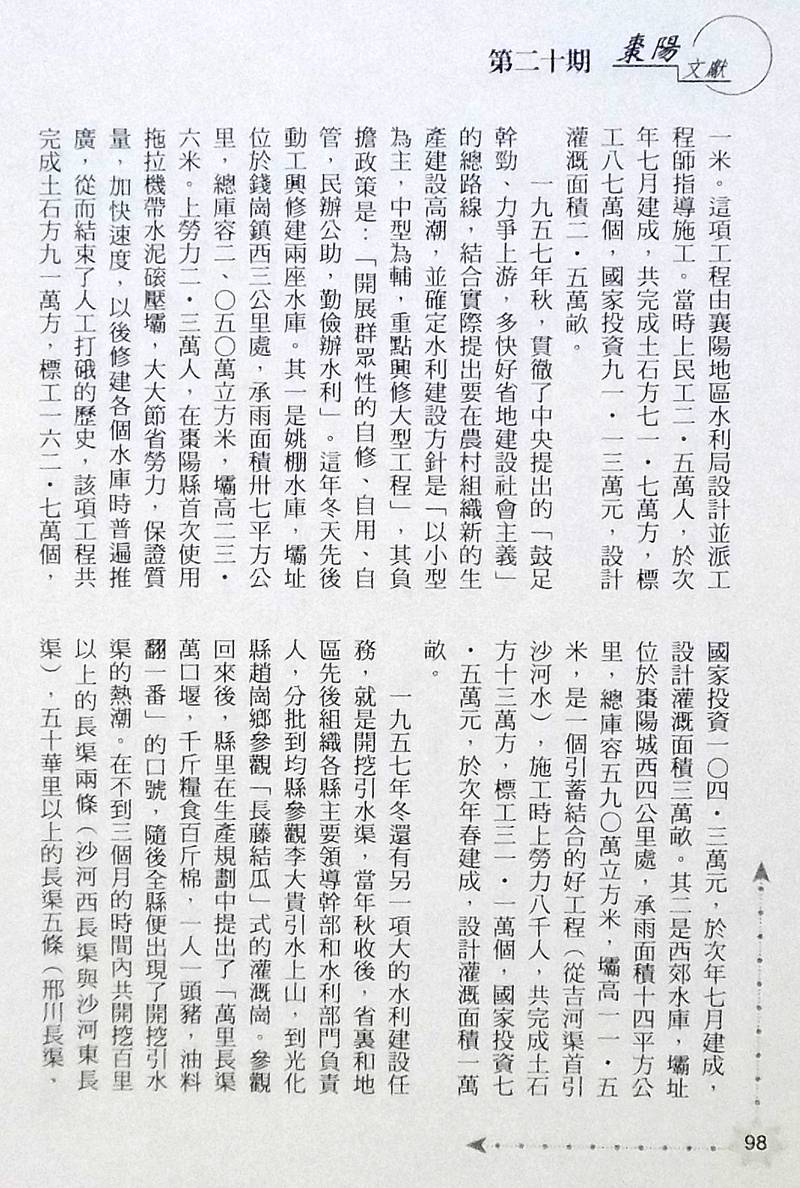 第二十期
棗陽
文獻
一米。這項工程由襄陽地區水利局設計並派工
程師指導施工。當時上民工二·五萬人，於次
年七月建成，共完成土石方七一·七萬方，標
工八七萬個，國家投資九一·一三萬元，設計
灌溉面積二·五萬畝。
一九五七年秋，貫徹了中央提出的「鼓足
幹勁、力爭上游，多快好省地建設社會主義」
的總路線，結合實際提出要在農村組織新的生
產建設高潮，並確定水利建設方針是「以小型
為主，中型為輔，重點興修大型工程」，其負
擔政策是：「開展群眾性的自修、自用、自
管，民辦公助，勤儉辦水利」。這年冬天先後
動工興修建兩座水庫。其一是姚棚水庫，壩址
位於錢崗鎮西三公里處，承雨面積卅七平方公
里，總庫容二、〇五〇萬立方米，壩高二三·
六米。上勞力二·三萬人，在棗陽縣首次使用
拖拉機帶水泥磙壓壩，大大節省勞力，保證質
量，加快速度，以後修建各個水庫時普遍推
廣，從而結束了人工打硪的歷史，該項工程共
完成土石方九一萬方，標工一六二·七萬個，
國家投資一〇四·三萬元，於次年七月建成，
設計灌溉面積三萬畝。其二是西郊水庫，壩址
位於棗陽城西四公里處，承雨面積十四平方公
里，總庫容五九〇萬立方米，壩高一一·五
米，是一個引蓄結合的好工程（從吉河渠首引
沙河水），施工時上勞力八千人，共完成土石
方十三萬方，標工三一·一萬個，國家投資七
·五萬元，於次年春建成，設計灌溉面積一萬
畝。
一九五七年冬還有另一項大的水利建設任
務，就是開挖引水渠，當年秋收後，省裏和地
區先後組織各縣主要領導幹部和水利部門負責
人，分批到均縣參觀李大貴引水上山，到光化
縣趙崗鄉參觀「長藤結瓜」式的灌溉崗。參觀
回來後，縣里在生產規劃中提出了「萬里長渠
萬口堰，千斤糧食百斤棉，一人一頭豬，油料
翻一番」的口號，隨後全縣便出現了開挖引水
渠的熱潮。在不到三個月的時間內共開挖百里
以上的長渠兩條（沙河西長渠與沙河東長
渠），五十華里以上的長渠五條（邢川長渠，
98